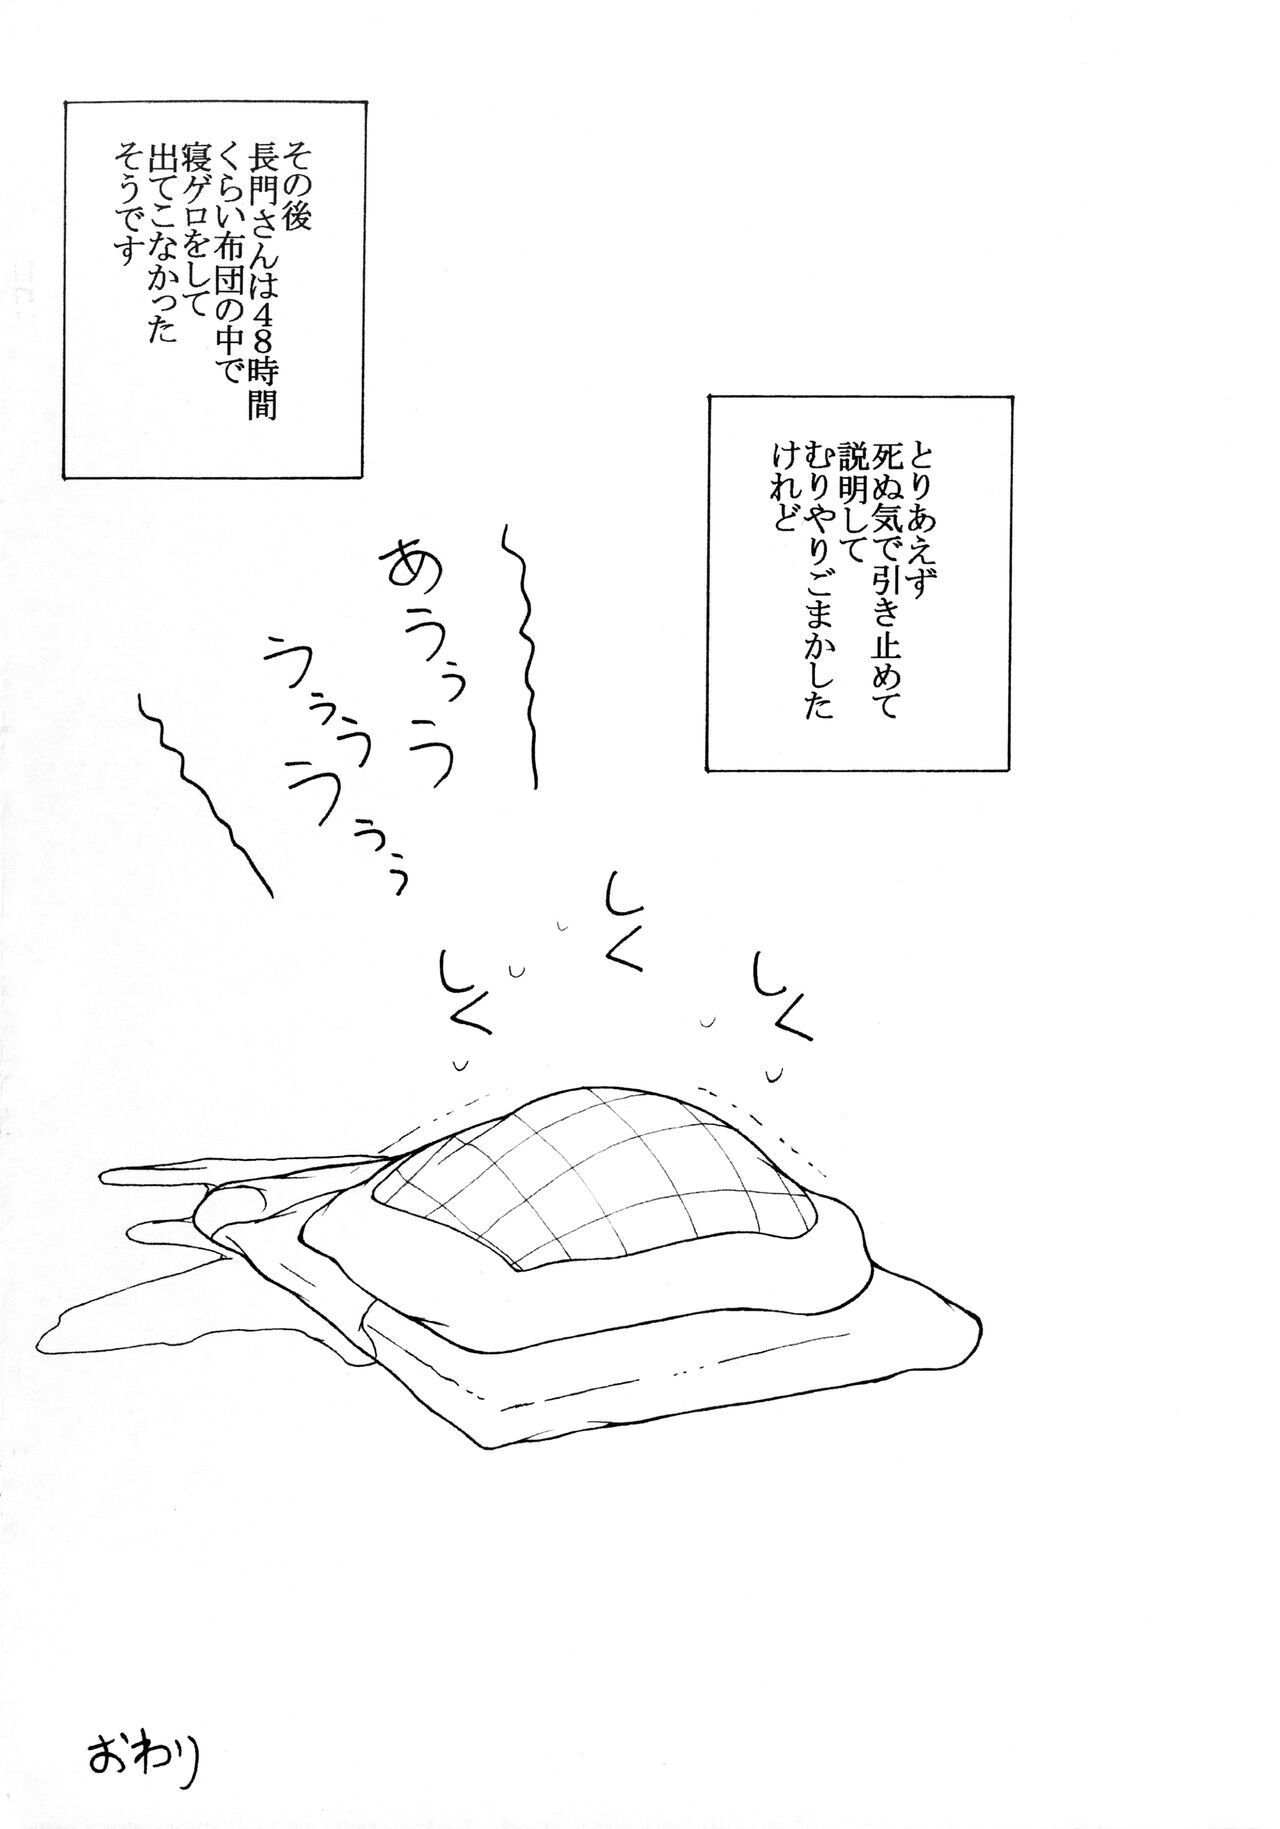 とりあえず
死ぬ気で引き止めて
説明して
むりやりごまかした
けれど
その後
長門さんは４８時間
くらい布団の中で
寝ゲロをして
出てこなかった
そうです
あうぅう
うぅううぅぅ
しく
しく
しく
おわり